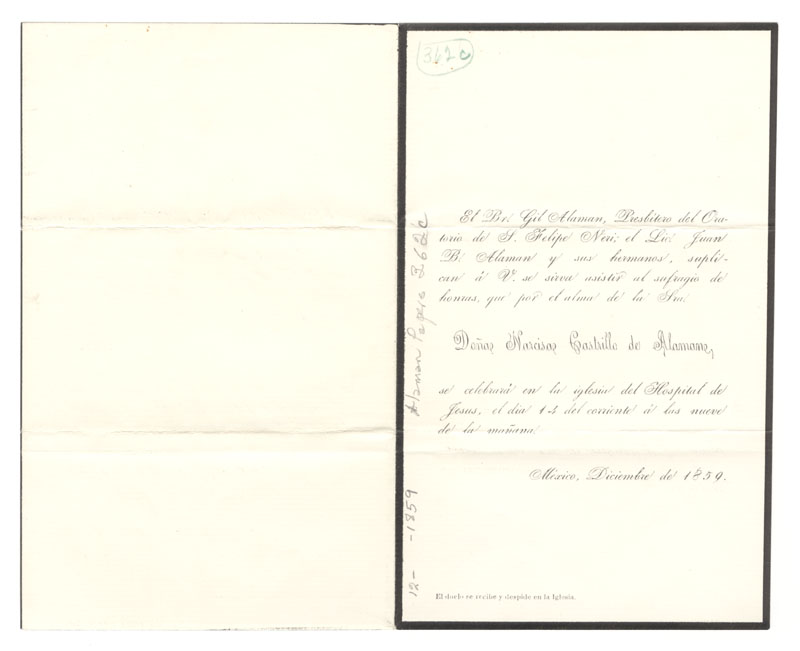 362c
El Br. Gil Alaman, Presbitero del Ora-
torio de S. Felipe Neri; el Lic. Juan
B. Alaman y sus hermanos, supli-
can á V. se sirva asistir al sufragio de
honras, que por el alma de la Sra.
Doña Narcisa Castrillo de Alaman,
se celebrará en la iglesia del Hospital de
Jesus, el dia 14 del corriente á las nueve
de la mañana.
México, Diciembre de 1859.
El duelo se recibe y despide en la Iglesia.
12- -1859 Alaman Papers 362c